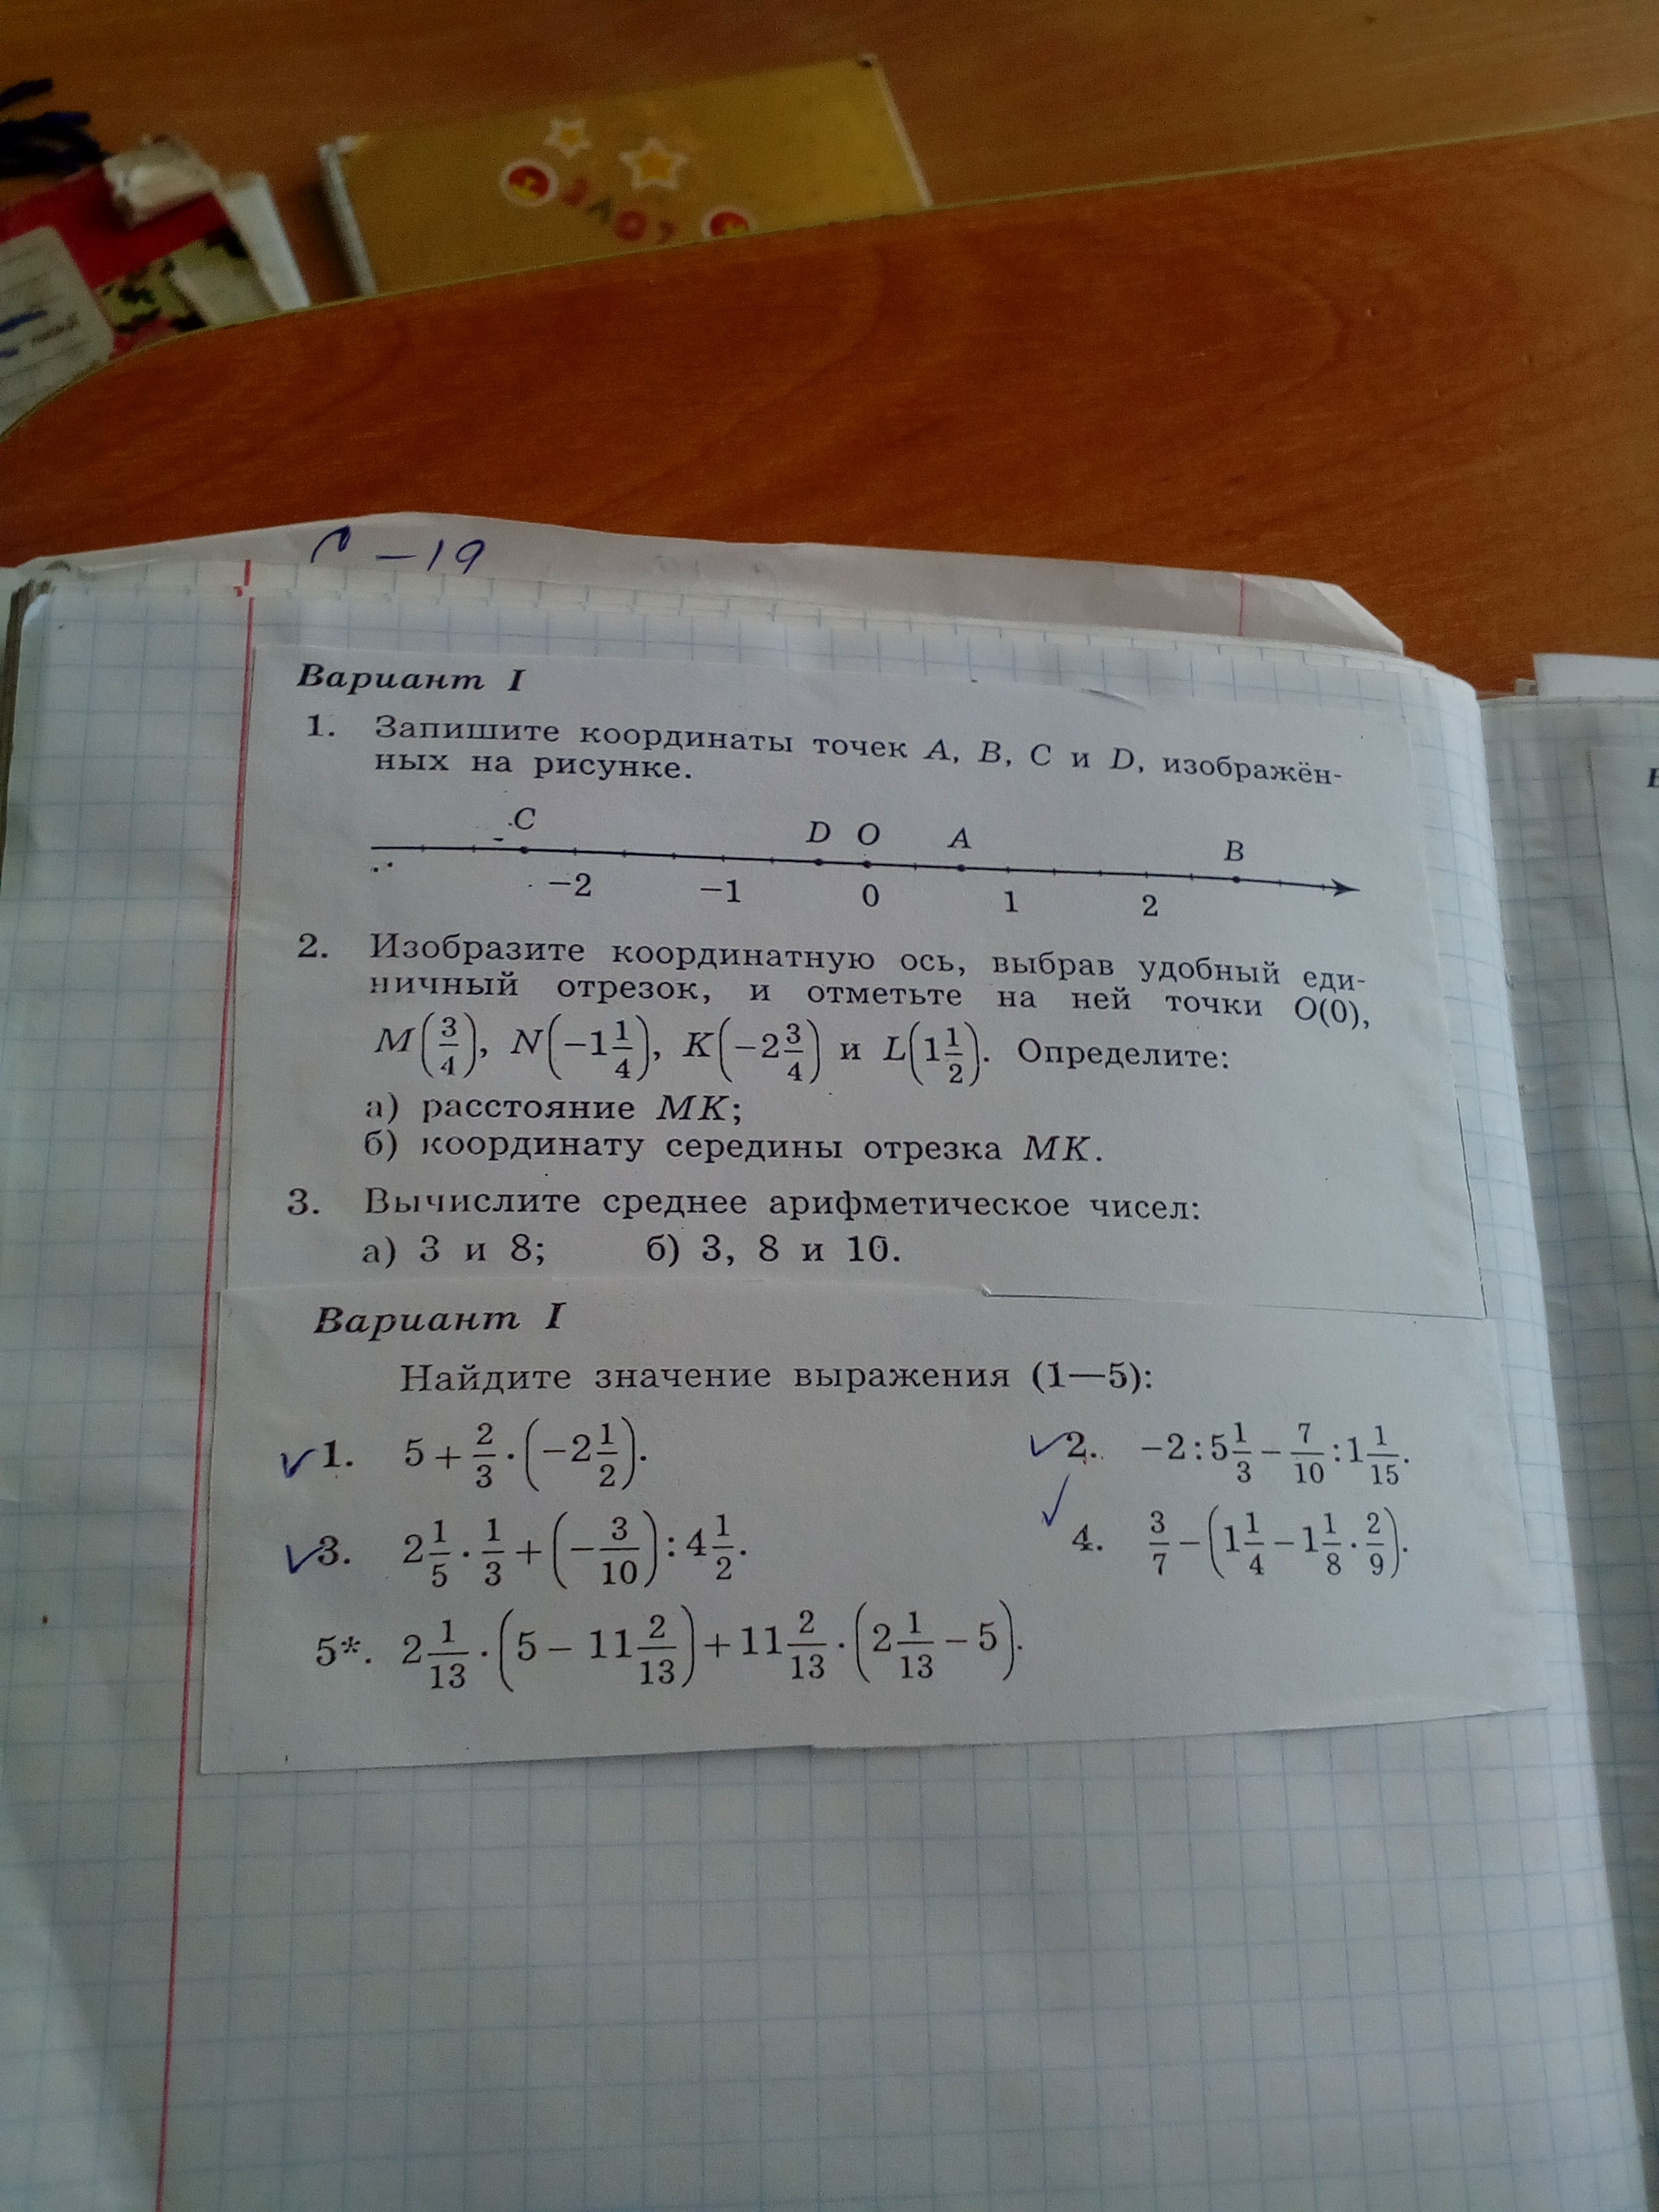 -19
Вариант I
1. Запишите координаты точек A, B, C и D, изображён-
ных на рисунке.
C D O A B
-2 -1 0 1 2
2. Изобразите координатную ось, выбрав удобный еди-
ничный отрезок, и отметьте на ней точки O(0),
M(3/4), N(-1 1/4), K(-2 3/4) и L(1 1/2). Определите:
а) расстояние MK;
б) координату середины отрезка MK.
3. Вычислите среднее арифметическое чисел:
а) 3 и 8; б) 3, 8 и 10.
Вариант I
Найдите значение выражения (1—5):
1. 5 + 2/3 · (-2 1/2). 2. -2 : 5 1/3 - 7/10 : 1 1/15.
3. 2 1/5 · 1/3 + (-3/10) : 4 1/2. 4. 3/7 - (1 1/4 - 1 1/8 · 2/9).
5*. 2 1/13 · (5 - 11 2/13) + 11 2/13 · (2 1/13 - 5).